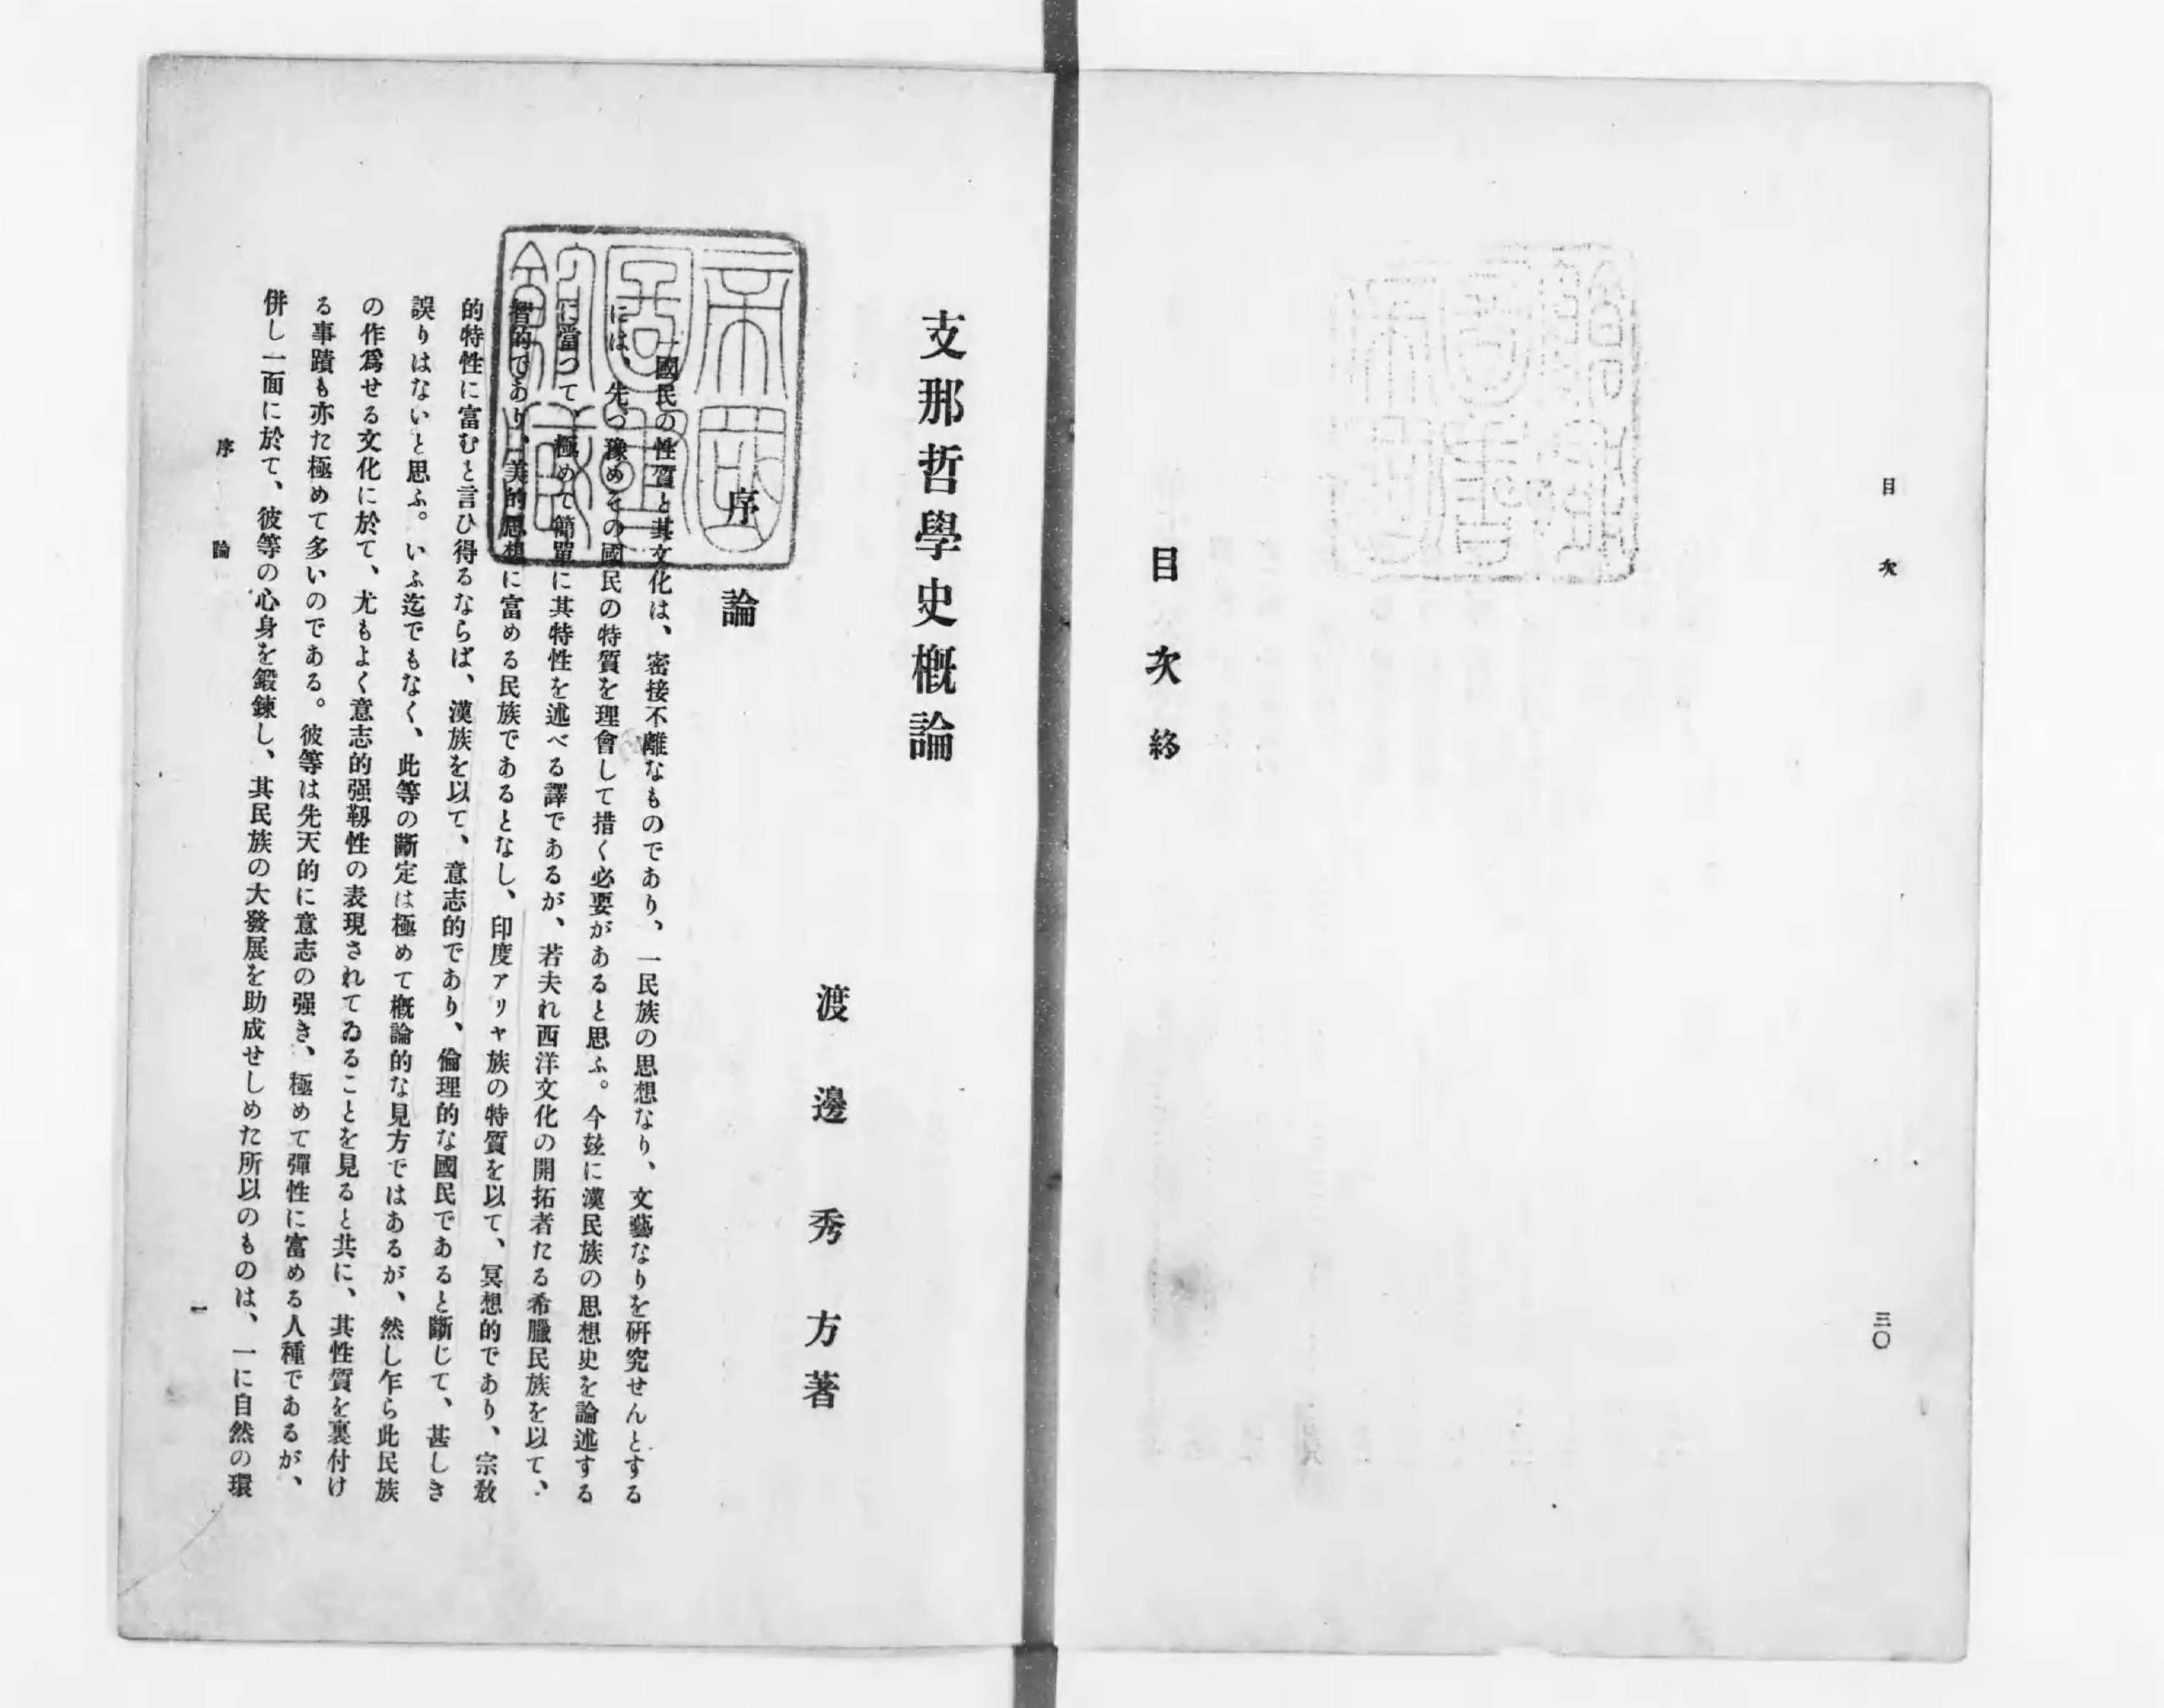 目次
三〇
目次終
支那哲學史概論
渡邊秀方著
序論
一國民の性質と其文化は、密接不離なものであり、一民族の思想なり、文藝なりを硏究せんとする
には、先づ豫めその國民の特質を理會して措く必要があると思ふ。今玆に漢民族の思想史を論述する
に當つて、極めて簡單に其特性を述べる譯であるが、若夫れ西洋文化の開拓者たる希臘民族を以て、
智的であり、美的思想に富める民族であるとなし、印度アリヤ族の特質を以て、冥想的であり、宗敎
的特性に富むと言ひ得るならば、漢族を以て、意志的であり、倫理的な國民であると斷じて、甚しき
誤りはないと思ふ。いふ迄でもなく、此等の斷定は極めて槪論的な見方ではあるが、然し乍ら此民族
の作爲せる文化に於て、尤もよく意志的强靱性の表現されてゐることを見ると共に、其性質を裏付け
る事蹟も亦た極めて多いのである。彼等は先天的に意志の强き、極めて彈性に富める人種であるが、
併し一面に於て、彼等の心身を鍛鍊し、其民族の大發展を助成せしめた所以のものは、一に自然の環
序論
一
帝國圖書館藏